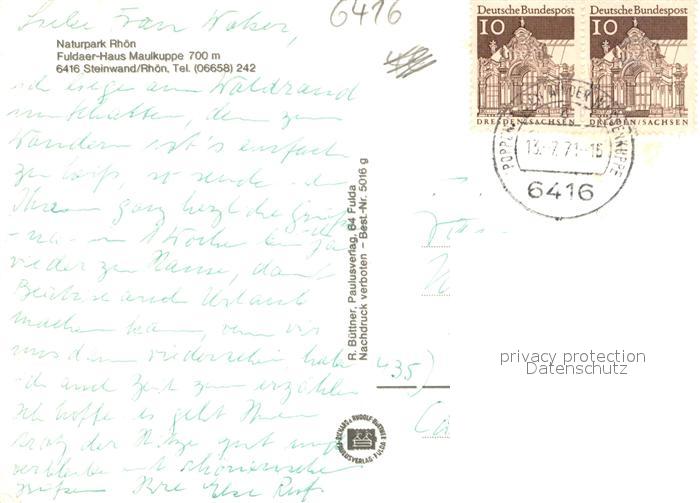 Liebe Frau
6416
Naturpark Rhön
Fuldaer-Haus Maulkuppe 700 m
6416 Steinwand/Rhön, Tel. (06658) 242
ich liege am Waldrand
im Schatten, denn zum
Wandern ist's einfach
zu heiß, so sende ich
Ihnen ganz herzliche Grüße
in 1 Woche bin ich ja
wieder zu Hause, damit
und Urlaub
machen kann, wenn wir
uns dann wiedersehen habe
ich auch Zeit zum erzählen
Ich hoffe es geht Ihnen
trotz der Hitze gut und
verbleibe mit
Grüßen Ihre Else
R. Büttner, Paulusverlag, 64 Fulda
Nachdruck verboten – Best.-Nr. 5016 g
RUDOLF BÜTTNER
PAULUSVERLAG · FULDA
Deutsche Bundespost
10
DRESDEN/SACHSEN
Deutsche Bundespost
10
DRESDEN/SACHSEN
13.-7.71-16
6416
435)
privacy protection
Datenschutz